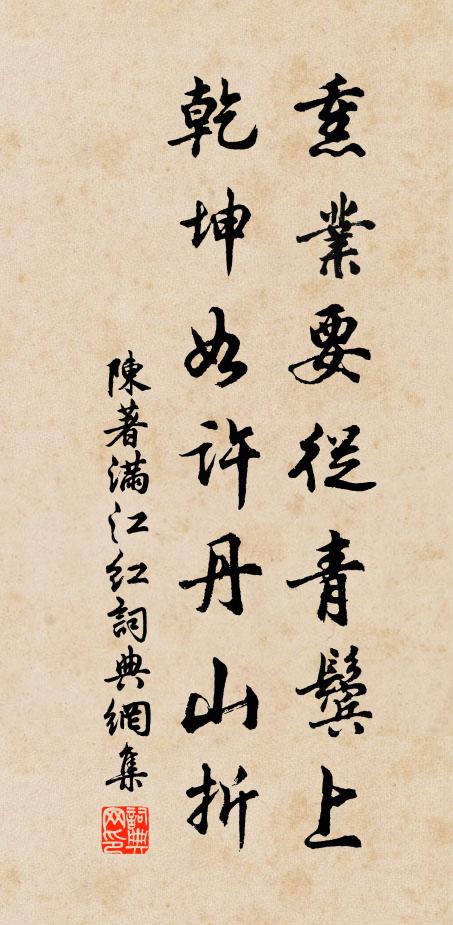 熏業要從青鬢上
乾坤如許丹山折
陳著滿江紅詞典網集
詞典网印